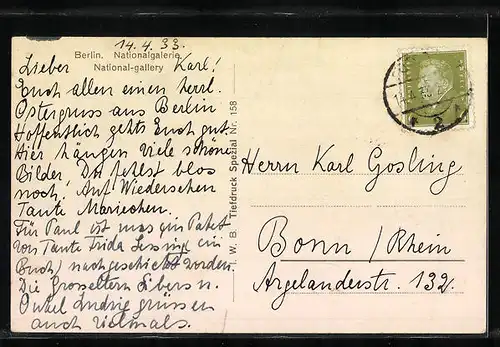 14.4.33.
Berlin. Nationalgalerie
National-gallery
Lieber Karl!
Euch allen einen herzl.
Ostergruss aus Berlin
Hoffentlich gehts Euch gut.
Hier hängen viele schöne
Bilder. Du fehlst blos
noch! Auf Wiedersehen
Tante Mariechen.
Für Paul ist was ein Paket
von Tante Frida Lessing ein
Buch) nachgeschickt worden.
Die Grosseltern u.
Onkel grüssen
auch vielmals.
W. B. Tiefdruck Spezial Nr. 158
Herrn Karl Gosling
Bonn/Rhein
Argelanderstr. 132.